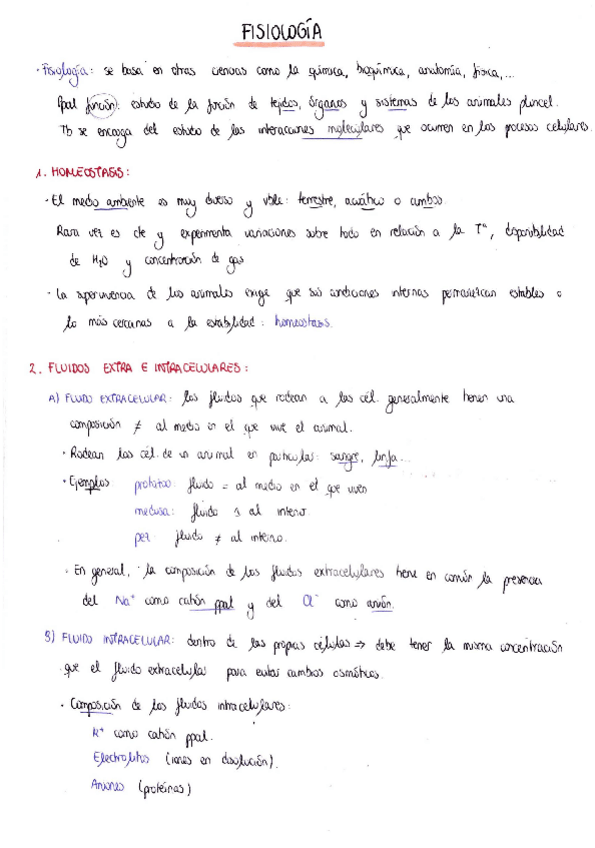 FISIOLOGÍA
· Fisiología: se basa en otras ciencias como la química, bioquímica, anatomía, física,...
Ppal función: estudio de la función de tejidos, órganos y sistemas de los animales pluricel.
Tb se encarga del estudio de las interacciones moleculares que ocurren en los procesos celulares.
1. HOMEOSTASIS:
· El medio ambiente es muy diverso y vble: terrestre, acuático o ambos.
Rara vez es cte y experimenta variaciones sobre todo en relación a la Tª, disponibilidad
de H2O y concentración de gas
· La supervivencia de los animales exige que sus condiciones internas permanezcan estables o
lo más cercanas a la estabilidad: homeostasis.
2. FLUIDOS EXTRA E INTRACELULARES:
A) FLUIDO EXTRACELULAR: los fluidos que rodean a las cél. generalmente tienen una
composición ≠ al medio en el que vive el animal.
· Rodean las cél. de un animal en particular: sangre, linfa...
· Ejemplos: fluido = al medio en el que viven
medusa: fluido al interno.
pez: fluido ≠ al interno.
· En general, la composición de los fluidos extracelulares tiene en común la presencia
del Na+ como catión ppal y del Cl- como anión.
B) FLUIDO INTRACELULAR: dentro de las propias células => debe tener la misma concentración
que el fluido extracelular para evitar cambios osmóticos.
· Composición de los fluidos intracelulares:
K+ como catión ppal.
Electrolitos (iones en disolución).
Aniones (proteínas)